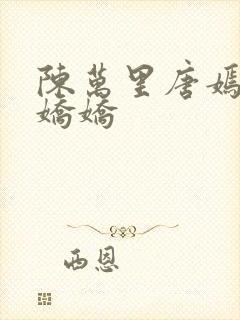 陳萬里唐嫣
嬌嬌
西恩